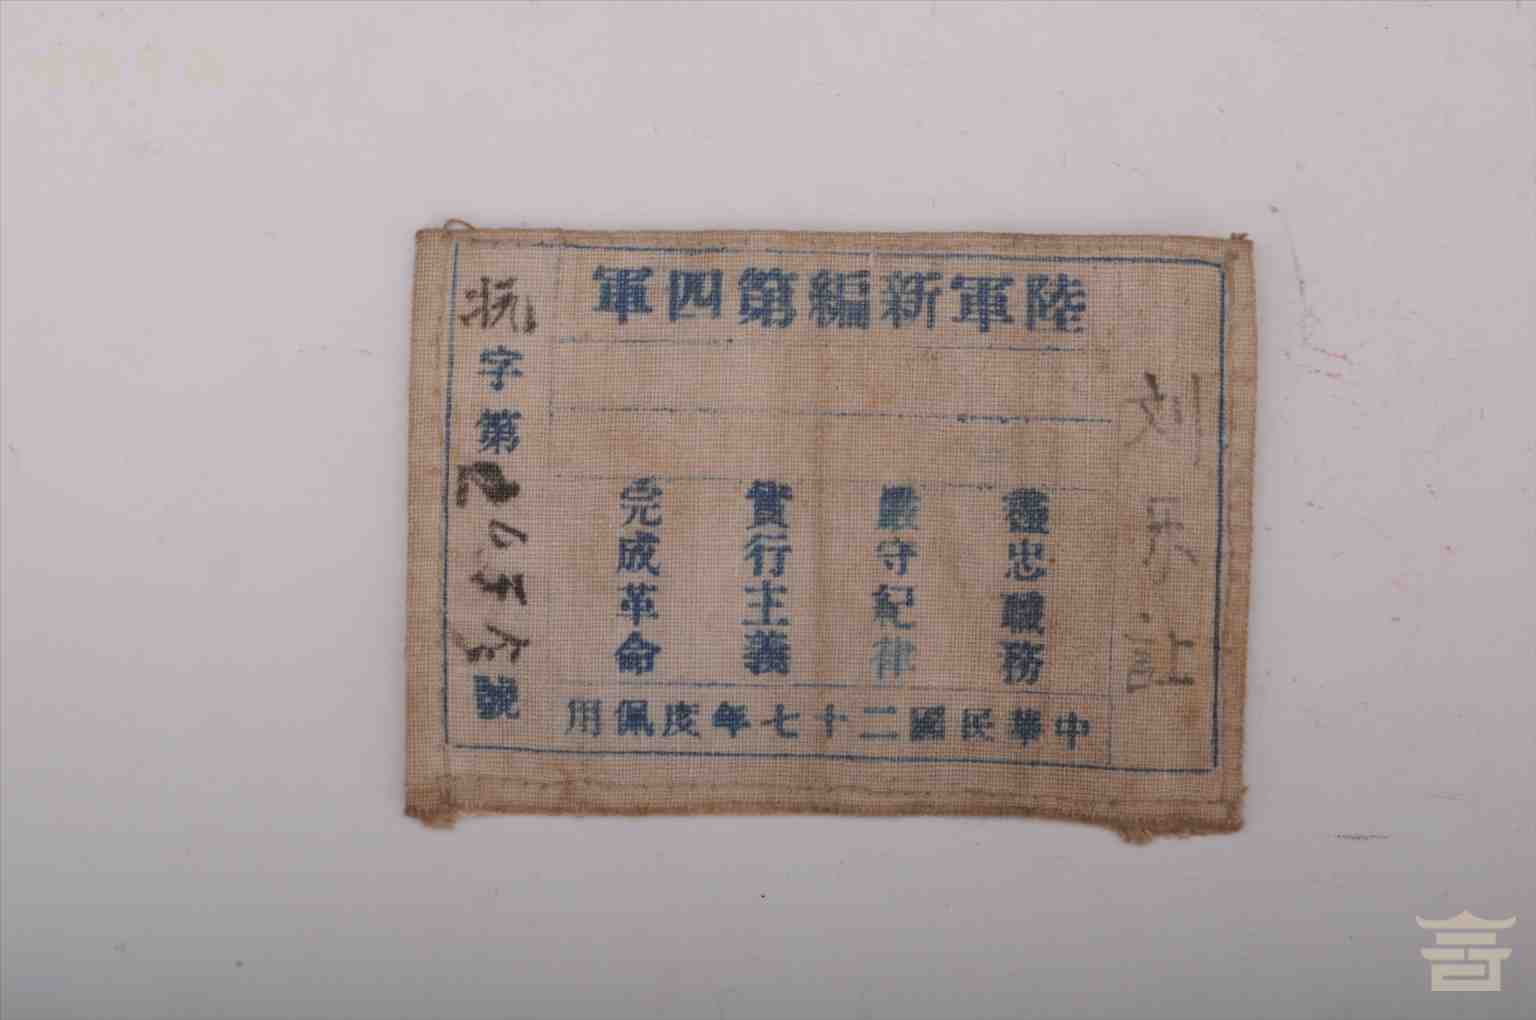 陸軍新編第四軍
盡忠職務
嚴守紀律
實行主義
完成革命
中華民國二十七年度佩用
抗字第
號